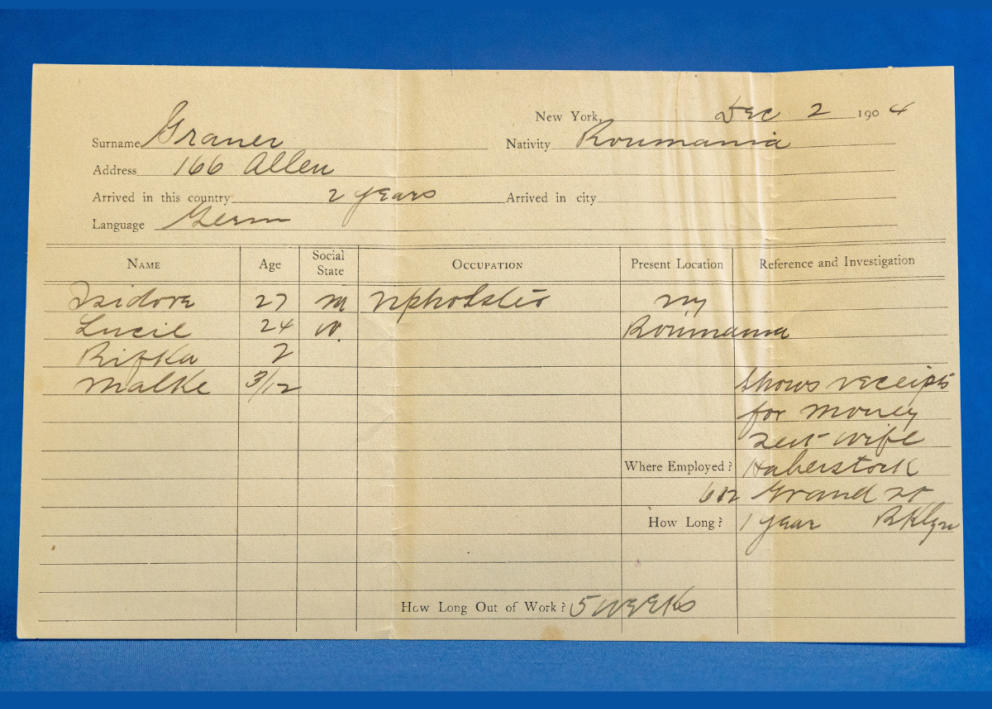 New York, Dec 2 1904
Surname Graner Nativity Roumania
Address 166 Allen
Arrived in this country 2 years Arrived in city
Language Germ
NAME Age Social State OCCUPATION Present Location Reference and Investigation
Isidore 27 m Upholster NY
Lucie 24 W. Roumania
Rifka 2
Malke 3/12 Shows receipts
for money
sent wife
Where Employed? Haberstock
602 Grand St
How Long? 1 year Bklyn
How Long Out of Work? 5 WEEKs